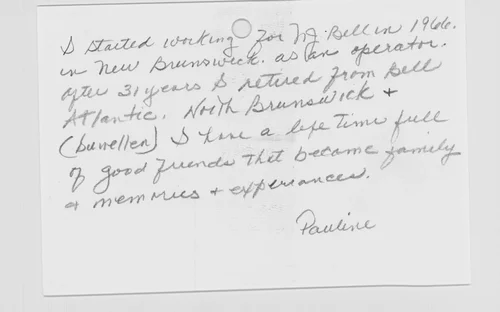 I started working for N.J. Bell in 1966.
in New Brunswick. as an operator.
After 31 years I retired from Bell
Atlantic. North Brunswick +
(Duvellen) I have a life time full
of good friends that became family
+ memories + experiances.
Pauline